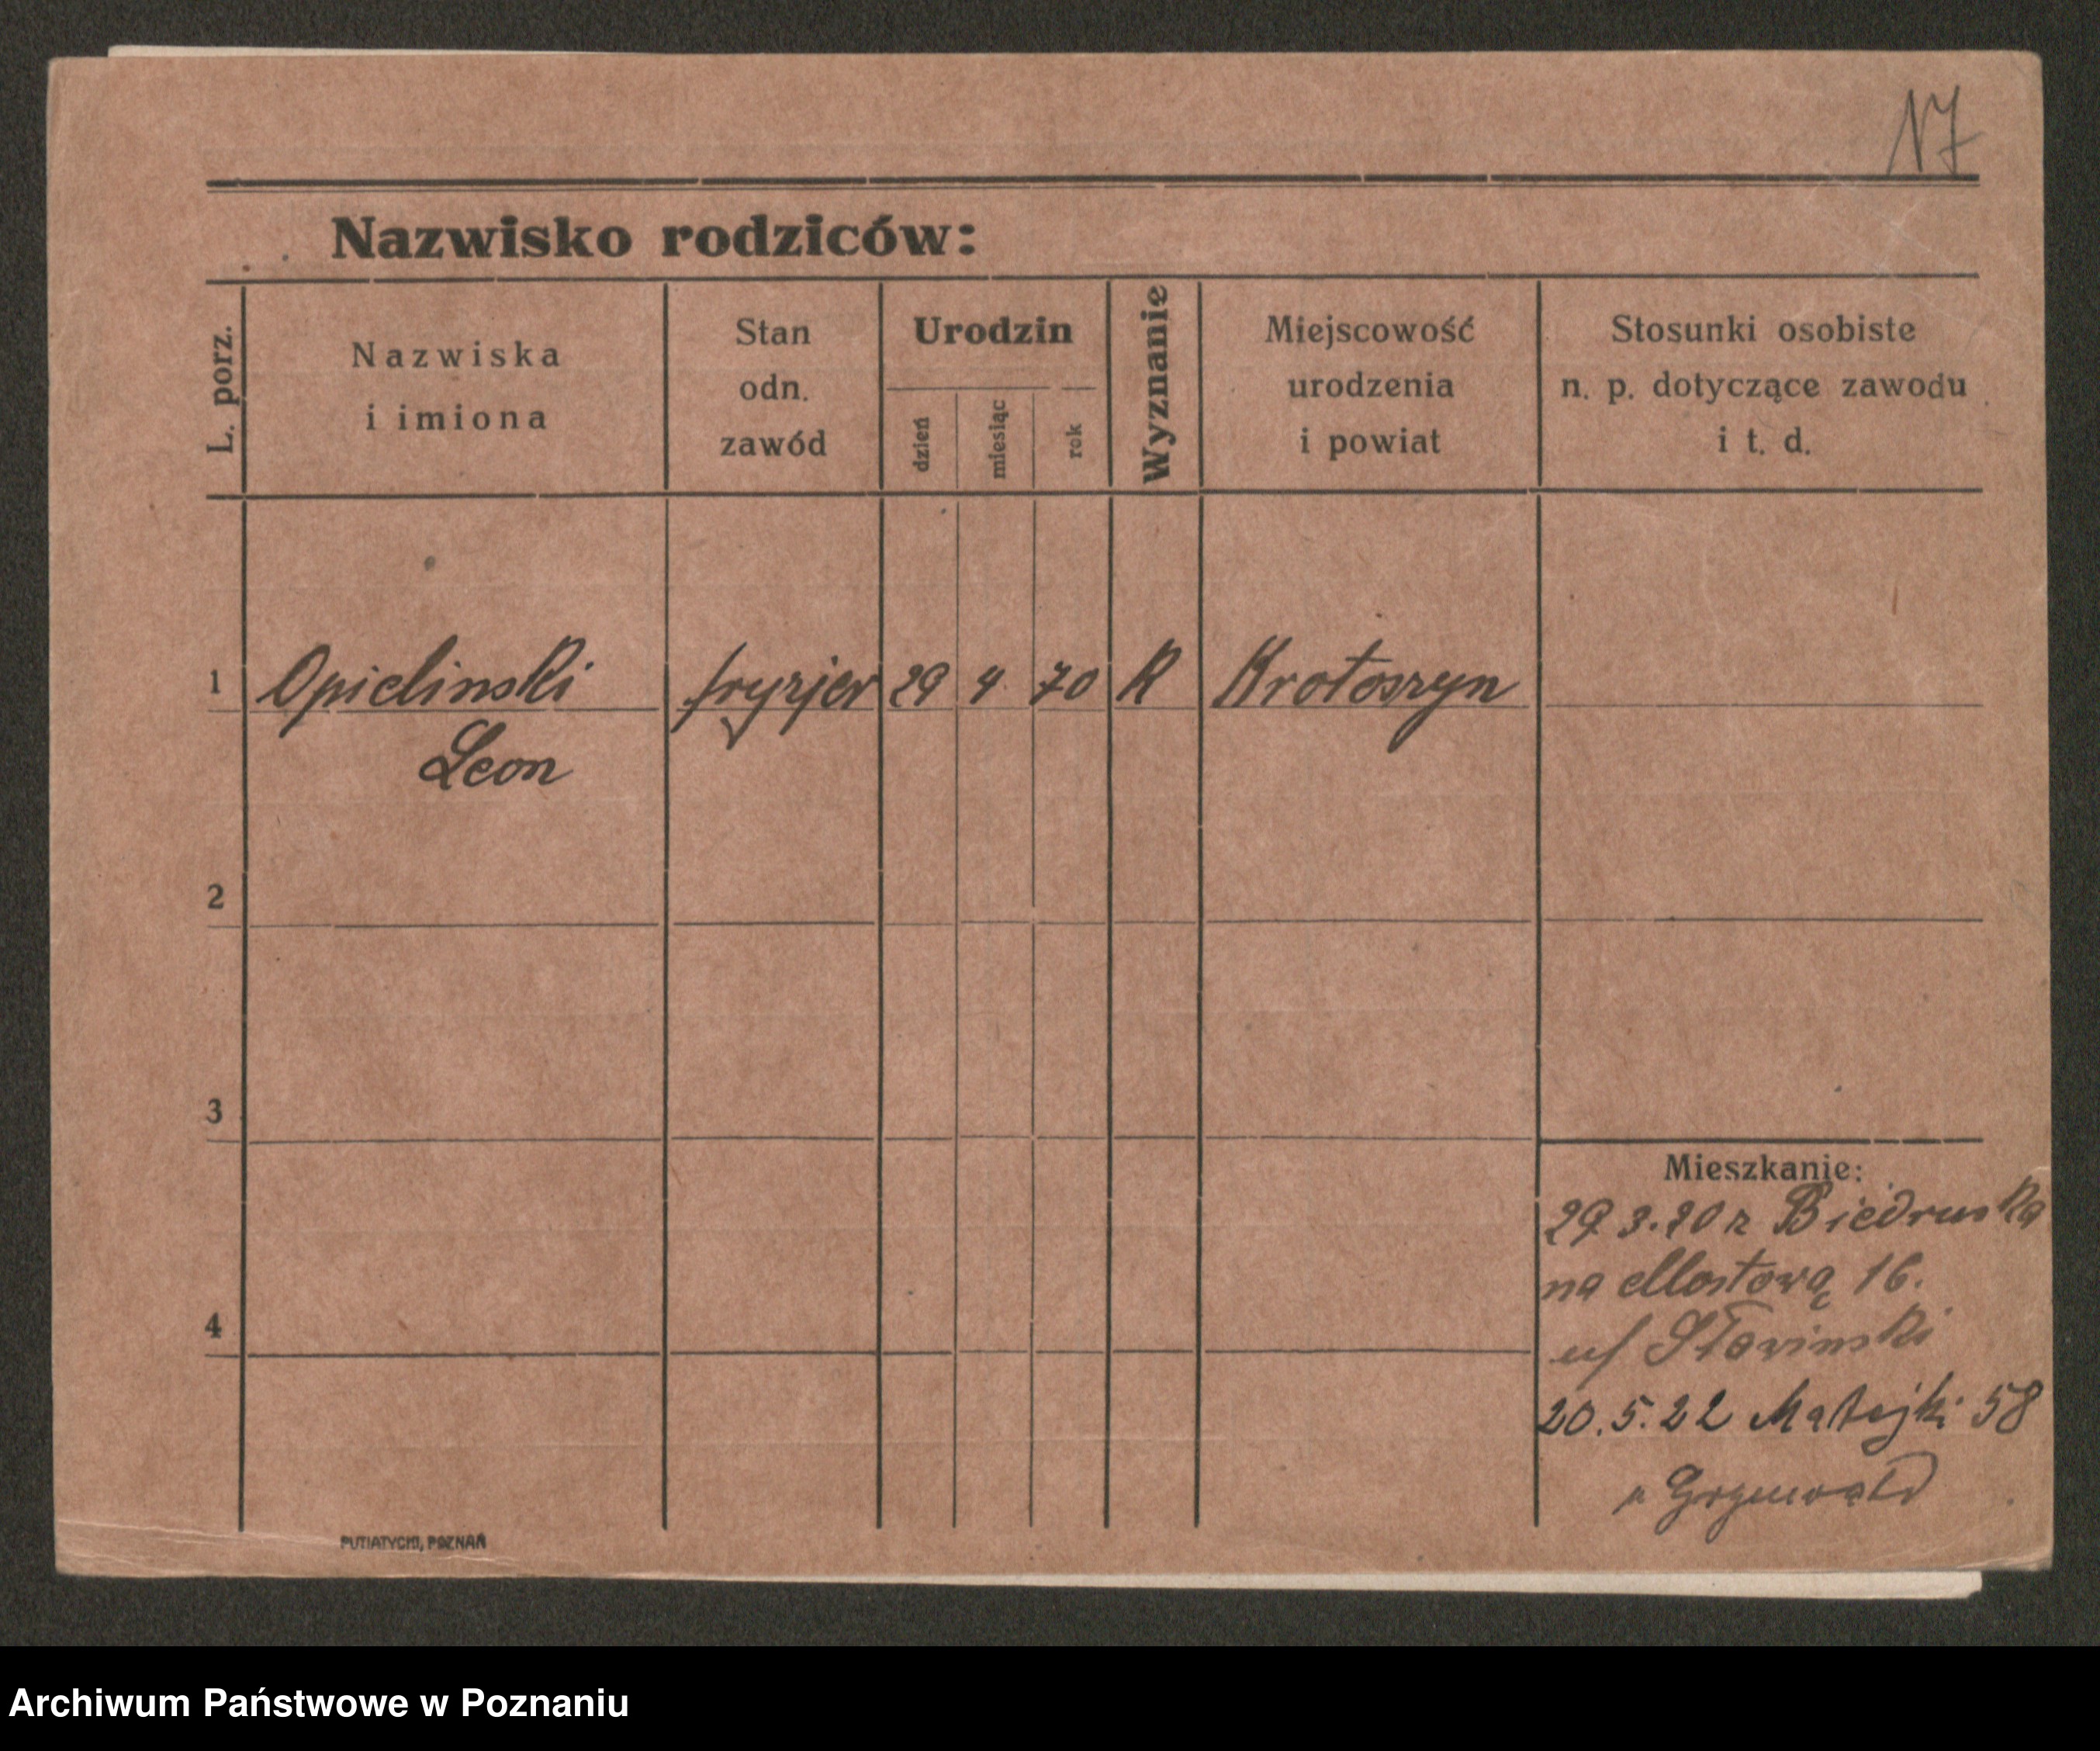 17
Nazwisko rodziców:
L. porz.
Nazwiska
i imiona
Stan
odn.
zawód
Urodzin
dzień
miesiąc
rok
Wyznanie
Miejscowość
urodzenia
i powiat
Stosunki osobiste
n. p. dotyczące zawodu
i t. d.
1 Opielinski fryzjer 29 4 70 R Krotoszyn
Leon
2
3
4
Mieszkanie:
29 3. 20 z Biedruska
na Mostową 16.
u/ Słowinski
20. 5. 22 Matejki 58
PUTIATYCKI, POZNAŃ
Archiwum Państwowe w Poznaniu